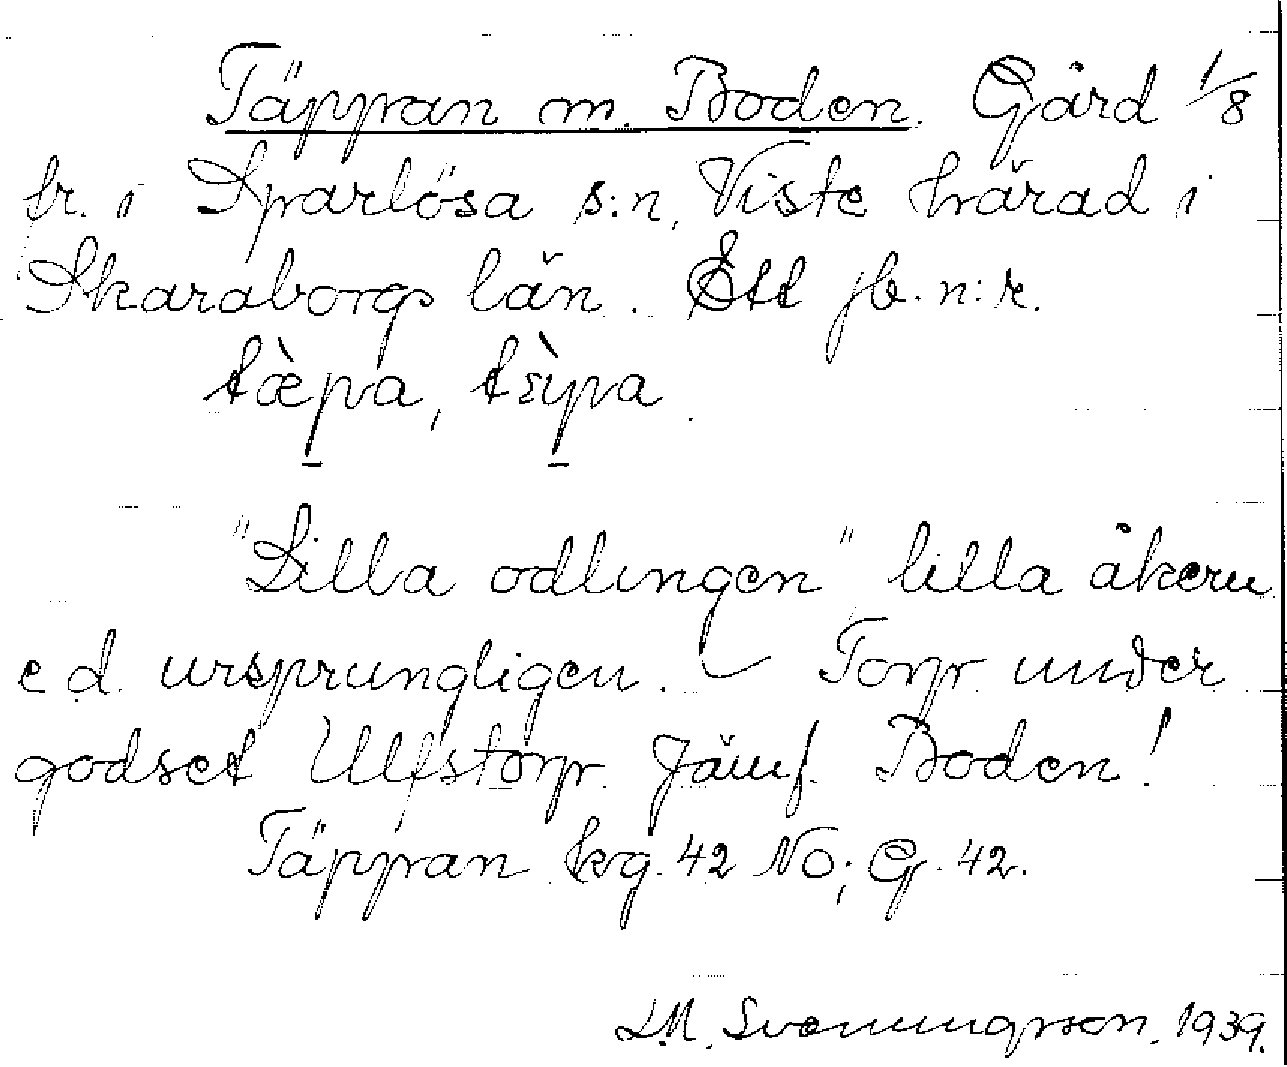 Täppan m. Boden. Gård 1/8
tr. i Sparlösa s:n, Viste härad i
Skaraborgs län. Ett jb. n:r.
tæ̀pa, tɛ̀pa.
"Lilla odlingen" lilla åkern
e d. ursprungligen. – Torp under
godset Ulfstorp. Jämf. Boden!
Täppan krg. 42 NO; G. 42.
L.M. Svenungsson. 1939.